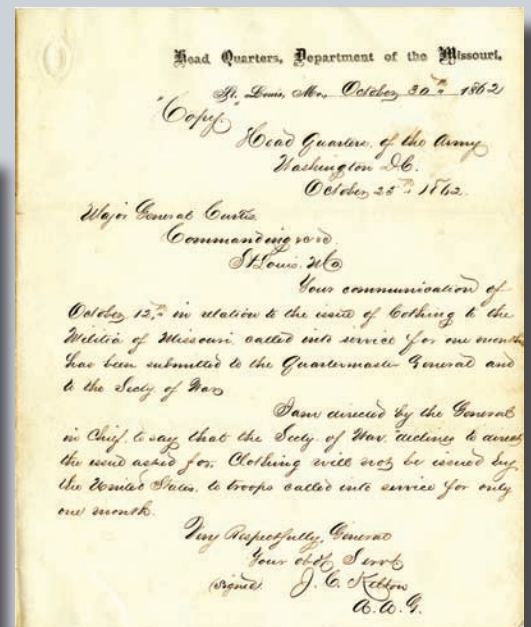 Head Quarters, Department of the Missouri,
St. Louis, Mo., October 30th 1862
"Copy"
Head Quarters of the Army
Washington D.C.
October 25th 1862.
Major General Curtis
Commanding
St Louis. Mo
Your communication of
October 12th in relation to the issue of Clothing to the
Militia of Missouri, called into service for one month
has been submitted to the Quartermaster General and
to the Secty. of War
I am directed by the General
in Chief, to say that the Secty. of War, "declines to direct
the issue asked for. Clothing will not be issued by
the United States, to troops called into service for only
one month.
Very Respectfully, General
Your obdt Servt
(signed) J. C. Kelton
A.A.G.